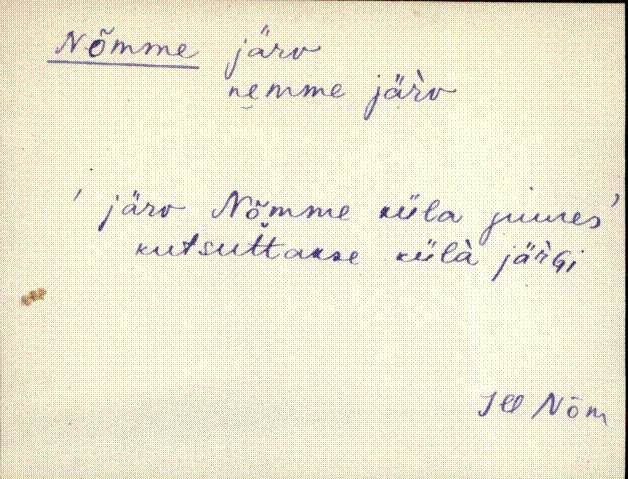 Nõmme järv
nemme jär̀v
' järv Nõmme küla juures'
kutsuttakse külà jär̀Gi
Nõm